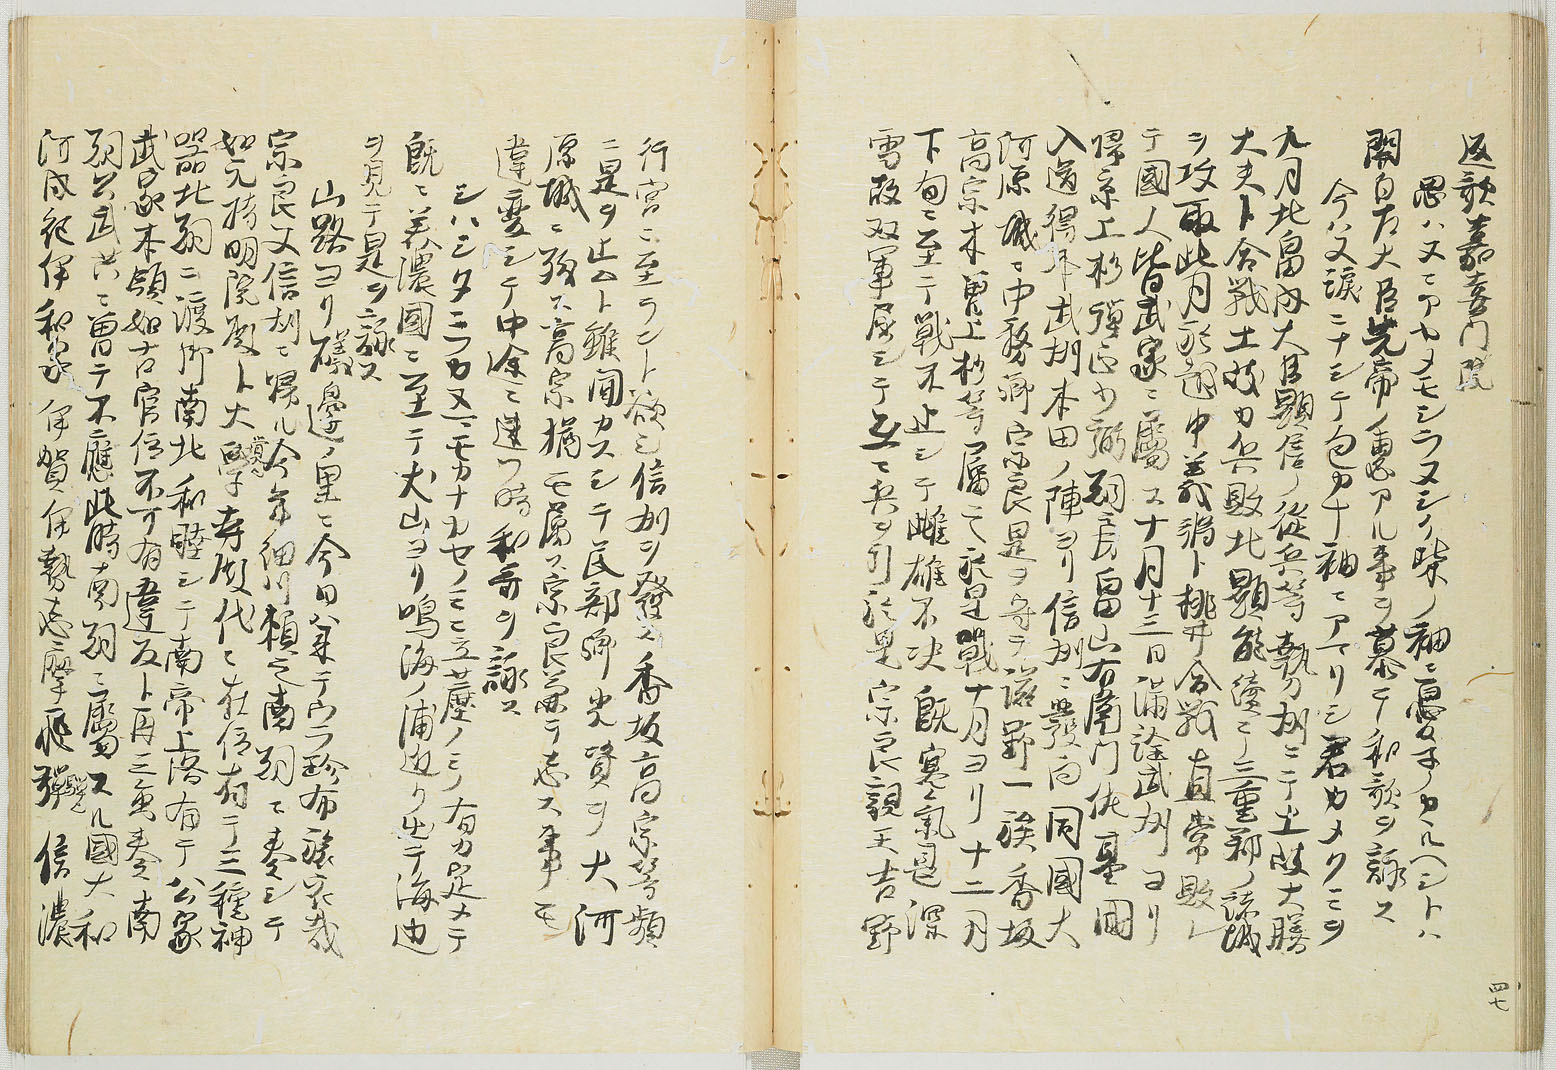 返歌嘉喜門院
思ハヌニアヤメモシラヌシイ柴ノ袖ニ憂子ノカヽルヘシトハ
関白左大臣先帝ノ事アル事ヲ慕テ和歌ヲ詠ス
今ハ又涙ニナシテ包カナ袖ニアマリシ君カメクミヲ
九月北畠内大臣顕信ノ從兵等勢州ニテ土岐大膳
大夫ト合戰土岐カ兵敗北顕能續テ三重郡ノ諸城
ヲ攻取此月於越中義将ト桃井合戦直常敗レ
テ國人皆武家ニ屬ス十月十三日蒲詮武州ヨリ
帰京上杉弾正少弼朝房畠山右衛門佐基國
入道得ｊ武州本田ノ陣ヨリ信州ニ發向同國大
河原城ニ中務卿宗良是ヲ守テ滋野一族香坂
高宗木曽上杉等ニ屬シテ於是戰十月ヨリ十二月
下旬ニ至テ戰不止シテ雌雄不决既寒氣甚深
雪故双軍屈シテ互ニ兵ヲ引於是宗良親王吉野
行宮ニ至ラント欲シ信州ヲ發ス香坂高宗等頻
ニ是ヲ止ムト雖聞カスシテ民部卿光資ヲ大河
原城ニ殘ス高宗猶モ属ス宗良兼テ志ス事モ
違変シテ中途ニ逗フ時和哥ヲ詠ス
シハシタニフカヌモカナ九セノミニ立塵ノミノ有カ定メテ
既ニ美濃國ニ至テ犬山ヨリ鳴海ノ浦近リ出テ海辺
ヲ見テ是ヲ詠ス
山路ヨリ磯邊ノ里ニ今日ハ来テ浦珍布旅衣哉
宗良又信州ニ帰ル今年細川頼之南朝ニ奏シテ
如元持明院殿ト大覺寺殿代ニ在位有テ三種神
器北朝ニ渡御南北和睦シテ南帝上洛有テ公家
武家本領如古官位不可有違反ト再三雖奏南
朝公武共ニ曽テ不應此時南朝ニ屬スル國大和
河内紀伊和泉伊賀伊勢志摩飛騨信濃
四七